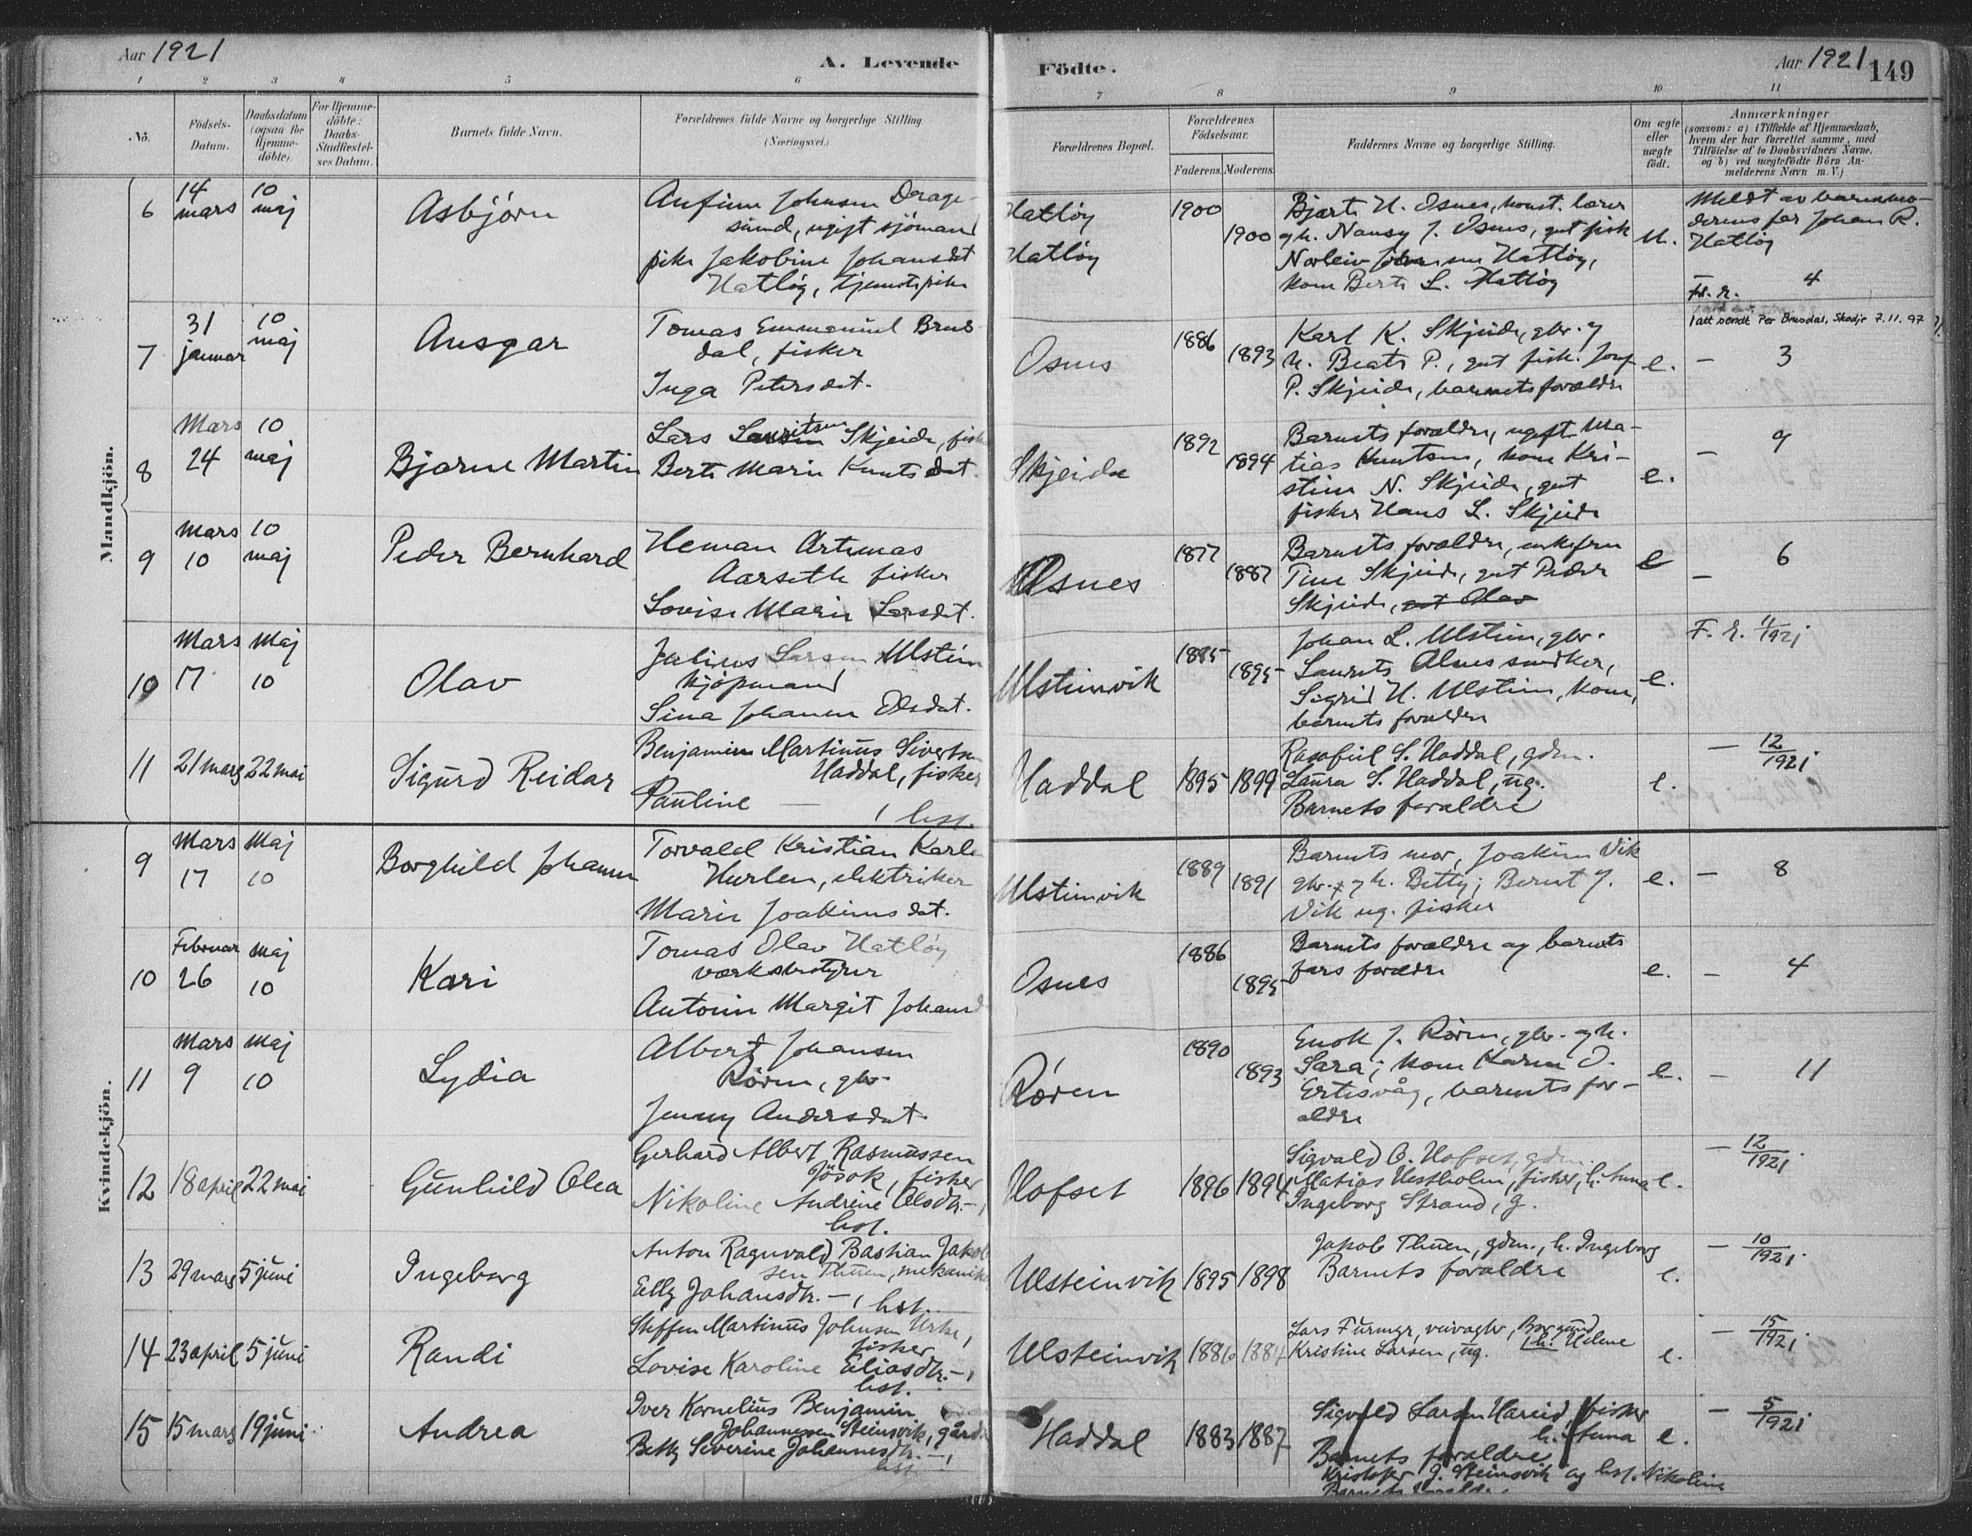 Aar 1921
A. Levende
Födte.
Aar 1921
149
1 2 3 4 5 6 7 8 9 10 11
No.
Födsels-
Datum.
Daabsdatum
(ogsaa for
Hjemme-
döbte).
For Hjemme-
döbte:
Daabs-
Stadfæstel-
ses Datum.
Barnets fulde Navn.
Forældrenes fulde Navne og borgerlige Stilling
(Næringsvei.)
Forældrenes Bopæl.
Forældrenes
Födselsaar.
Faderens. Moderens.
Faddernes Navne og borgerlige Stilling.
Om ægte
eller
uægte
födt.
Anmærkninger
(saasom: a) i Tilfælde af Hjemmedaab,
hvem der har forrettet samme, med
Tilföielse af to Daabsvidners Navne.
og b) ved uægtefödte Börn An-
melderens Navn m. V.)
Mandkjön.
6
14
mars
10
maj
Asbjørn
Anfinn Johnsen Drage-
sund, ugift sjömand
pike Jakobine Johansdat
Hatløy, tjenestepike
Hatløy
Hatløy
1900
1900
Bjarte H. Osnes, konst. lærer
og h. Nansy J. Osnes, gut fisk
Norleiv Hatløy,
kone Berte L. Hatløy
u.
Meldt av barnemo-
derens far Johan R.
Hatløy
F. r. 4
7
31
januar
10
maj
Ansgar
Tomas Emmanuel Brus-
dal, fisker
Inga Petersdat.
Osnes
1886
1893
Karl K. Skjeide, gbr. og
h. Beate P., gut fisk.
P. Skjeide, barnets forældre
e.
att sendt Per Brusdal, Skodje 7.11.97
— 3
8
Mars
24
10
maj
Bjarne Martin
Lars Skjeide, fisk
Berte Marie Knutsdat.
Skjeide
1892
1894
Barnets forældre, ugift Ma-
tias Knutsen, kone Kri-
stine N. Skjeide, gut
fisker Hans L. Skjeide
e.
— 9
9
Mars
10
10
maj
Peder Bernhard
Heman Artemas
Aarseth fisker
Lovise Marie Larsdat.
Osnes
1877
1887
Barnets forældre, enkefru
Tine Skjeide, gut Peder
Skjeide, gut Olav
e
— 6
10
Mars
17
Maj
10
Olav
Julius Larsen Ulstein
kjøpmand
Sina Johanne Olsdat.
Ulsteinvik
1885
1895
Johan L. Ulstein, gbr.
Laurits Osnes snedker,
Sigrid H. Ulstein, kone,
barnets forældre
e.
F. r. 11/1921
11
21 mars
22 mai
Sigurd Reidar
Benjamin Martinus Sivertsen
Haddal, fisker
Pauline — , hst.
Haddal
1895
1899
Rasofiel S. Haddal, gdm.
Laura S. Haddal, ug.
Barnets foraldre
e.
— 12/1921.
Kvindekjön.
9
Mars
17
Maj
10
Borghild Johanne
Torvald Kristian Karls
Hurlen, elektriker
Marie Joakimsdat.
Ulsteinvik
1889
1891
Barnets mor, Joakim Vik
gbr. og h. Betty; Bernt J.
Vik ug. fisker
e.
— 8
10
Februar
26
maj
10
Kari
Tomas Olav Hatløy
værksbestyrer
Antonie Margit Johansd
Osnes
1886
1895
Barnets forældre og barnets
fars forældre
e.
— 4
11
Mars
9
maj
10
Lydia
Albert Johansen
Røren, gbr.
Jenny Andersdat.
Røren
1890
1893
Enok J. Røren, gbr. og h.
Sara; kone Karen O.
Ertesvåg, barnets for-
ældre
e.
— 11
12
18 april
22 mai
Gunhild Olea
Gerhard Albert Rasmussen
Jösok, fisker
Nikoline Andrine Olsdtr. —,
hst.
Hofset
1896
1894
Sigvald O. Hofset, gdm.
Matias Vestholm, fisker, h. Anna
Ingeborg Strand, g.
e.
— 12/1921.
13
29 mars
5 juni
Ingeborg
Anton Ragnvald Bastian Jakob
sen Thuen, mekaniker
Elly Johansdtr. — , hst.
Ulsteinvik
1895
1898
Jakob Thuen, gdm., h. Ingeborg
Barnets foraldre
e.
— 10/1921.
14
23 april
5 juni
Randi
Steffen Martinus Johnsen Urke,
fisker
Lovise Karoline Eliasdtr. —,
hst.
Ulsteinvik
1886
1884
Lars Furmyr, veivagtr, Borgund
h. Helene
Kristine Larsen, ug.
e.
— 15/1921.
15
15 mars
19 juni
Andrea
Iver Kornelius Benjamin
Johannessen Steinsvik, gårdbr
Betty Severine Johannesdtr. —,
hst.
Haddal
1883
1887
Sigvald Larsen Hareid, fisker
h. Anna
Barnets foraldre
Kristofer J. Steinsvik og hst. Nikoline
Barnets foraldre
e.
— 5/1921.